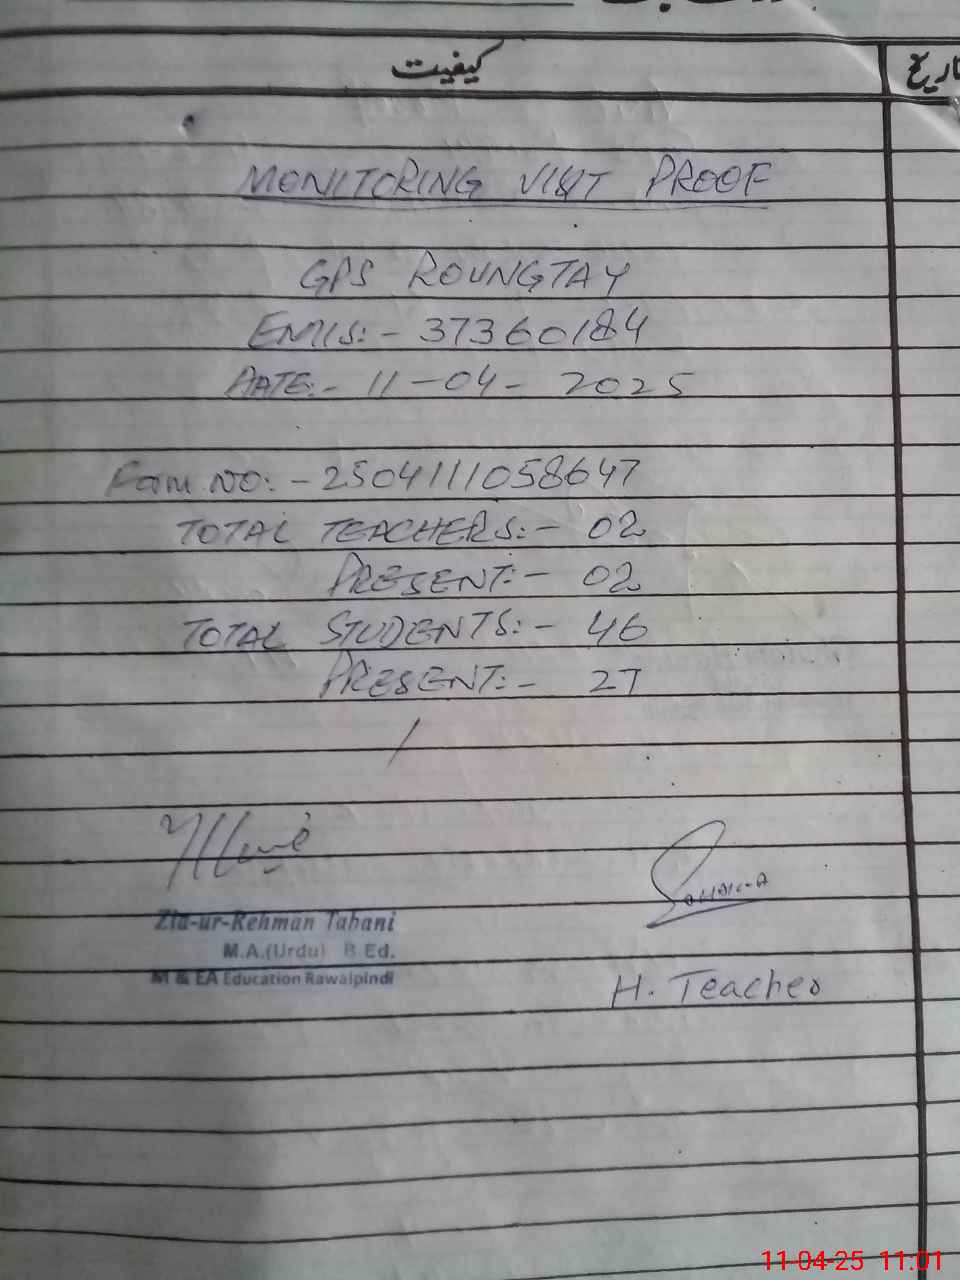 کیفیت
تاریخ
MONITORING VISIT PROOF
GPS ROUNGTAY
EMIS:- 37360184
DATE:- 11-04-2025
Form NO:- 2504111058647
TOTAL TEACHERS:- 02
PRESENT:- 02
TOTAL STUDENTS:- 46
PRESENT:- 27
Zia-ur-Rehman Tabani
M.A.(Urdu) B.Ed.
M & EA Education Rawalpindi
H. Teacher
11-04-25 11:01